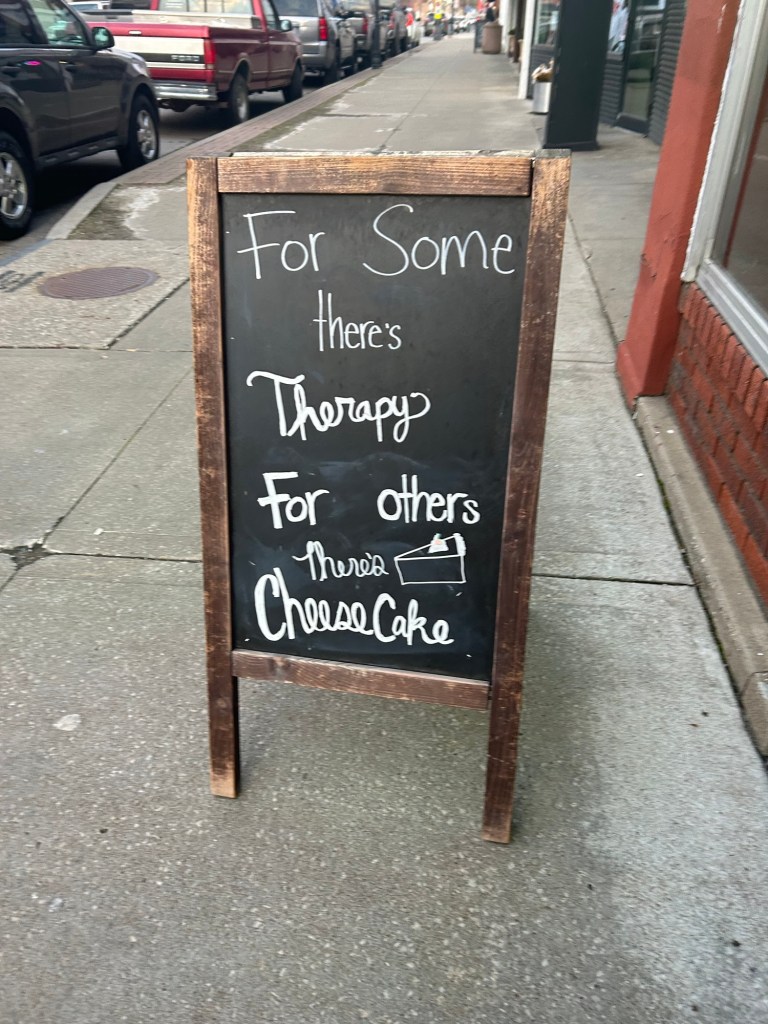 FORD
For Some
there's
Therapy
For others
There's
CheeseCake